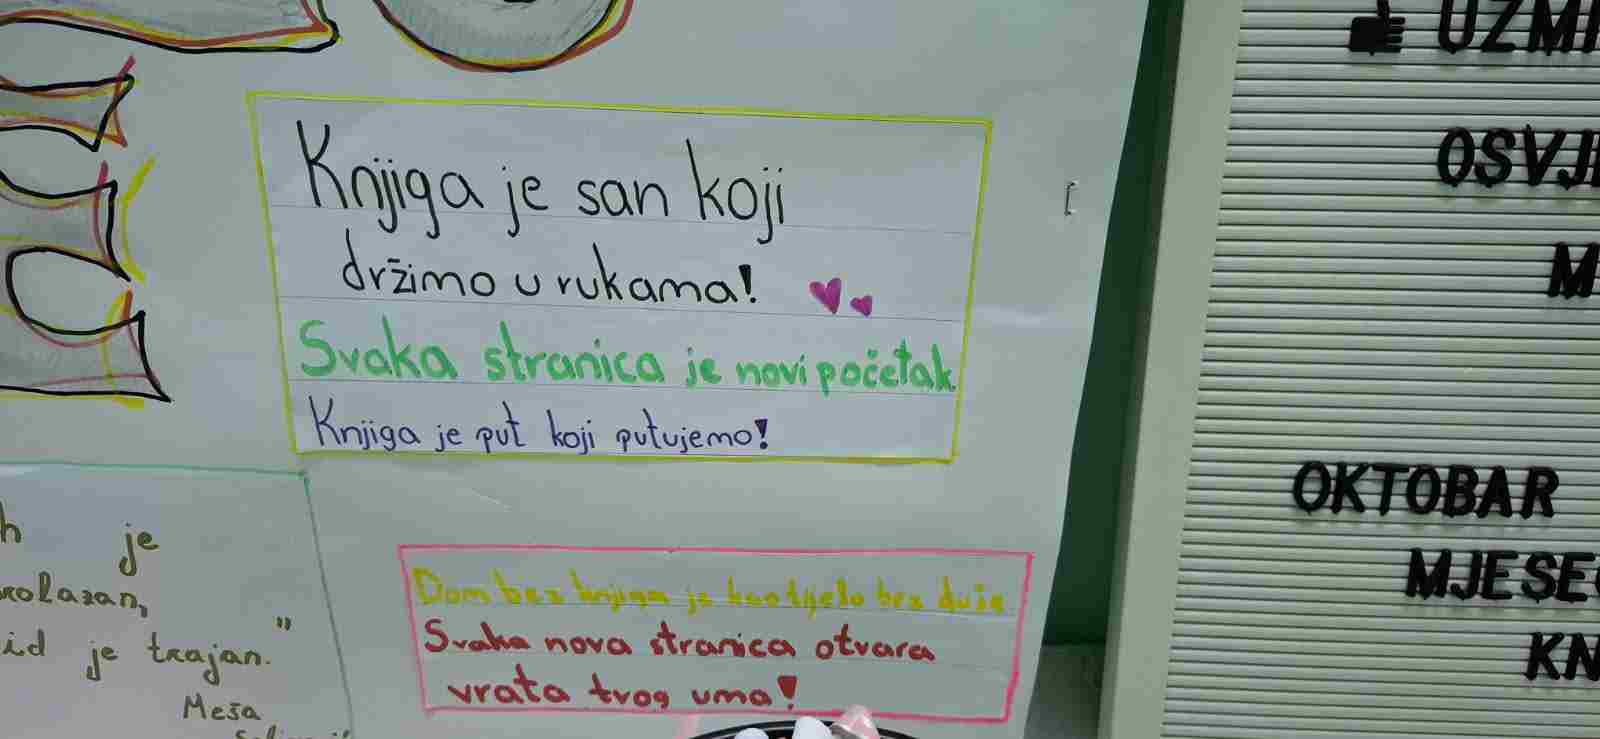 Knjiga je san koji
držimo u rukama!
Svaka stranica je novi početak
Knjiga je put koji putujemo!
je
id je trajan."
Meša
Dom bez knjiga je kao tijelo bez duše
Svaka nova stranica otvara
vrata tvog uma!
UZMI
OSVJE
M
OKTOBAR
MJESEC
KN